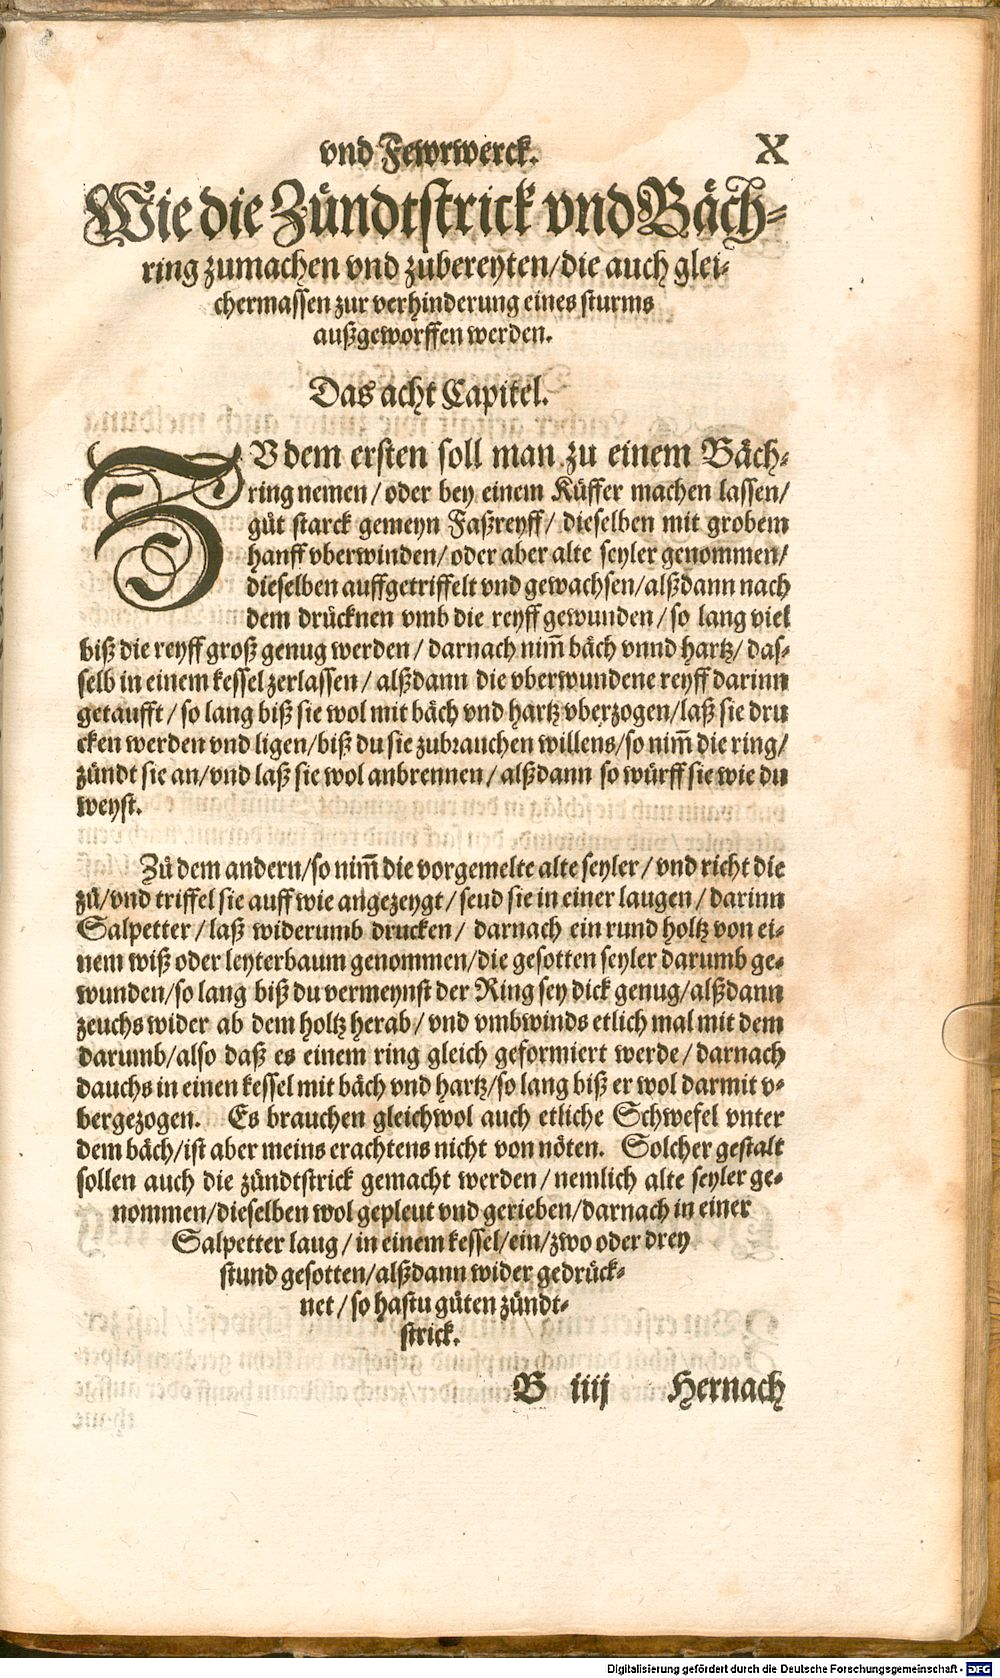 vnd Fewrwerck. X
Wie die Zündtstrick vnd Bäch-
ring zumachen vnd zůbereyten/die auch glei-
chermassen zur verhinderung eines sturms
außgeworffen werden.
Das acht Capitel.
ZV dem ersten soll man zu einem Bäch-
ring nemen/oder bey einem Küffer machen lassen/
gůt starck gemeyn Faßreyff/ dieselben mit grobem
hanff vberwinden/oder aber alte seyler genommen/
dieselben auffgetriffelt vnd gewachsen/alßdann nach
dem drücknen vmb die reyff gewunden/so lang viel
biß die reyff groß genug werden/ darnach nim̃ bäch vnnd hartz/ das-
selb in einem kessel zerlassen/ alßdann die vberwundene reyff darinn
getaufft/so lang biß sie wol mit bäch vnd hartz vberzogen/laß sie dru
cken werden vnd ligen/biß du sie zubrauchen willens/so nim̃ die ring/
zündt sie an/vnd laß sie wol anbrennen/ alßdann so würff sie wie du
weyst.
Zů dem andern/so nim̃ die vorgemelte alte seyler/ vnd richt die
zů/vnd triffel sie auff wie angezeygt/ seud sie in einer laugen/ darinn
Salpetter/laß widerumb drucken/ darnach ein rund holtz von ei-
nem wiß oder leyterbaum genommen/die gesotten seyler darumb ge-
wunden/so lang biß du vermeynst der Ring sey dick genug/alßdann
zeuchs wider ab dem holtz herab/ vnd vmbwinds etlich mal mit dem
darumb/also daß es einem ring gleich geformiert werde/ darnach
dauchs in einen kessel mit bäch vnd hartz/so lang biß er wol darmit v-
bergezogen. Es brauchen gleichwol auch etliche Schwefel vnter
dem bäch/ist aber meins erachtens nicht von nöten. Solcher gestalt
sollen auch die zündtstrick gemacht werden/ nemlich alte seyler ge-
nommen/dieselben wol gepleut vnd gerieben/darnach in einer
Salpetter laug/ in einem kessel/ein/zwo oder drey
stund gesotten/alßdann wider gedrück-
net/so hastu gůten zündt-
strick.
B iiij Hernach
Digitalisierung gefördert durch die Deutsche Forschungsgemeinschaft - DFG